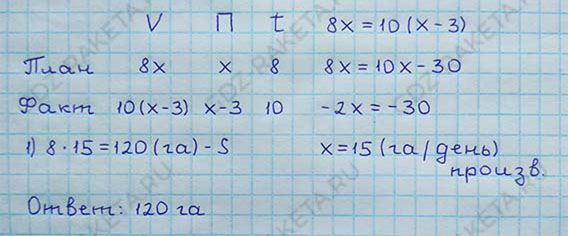 V П t 8x=10(x-3)
План 8x x 8 8x=10x-30
Факт 10(x-3) x-3 10 -2x=-30
1) 8·15=120(га)-S x=15(га/день)
произв.
Ответ: 120 га